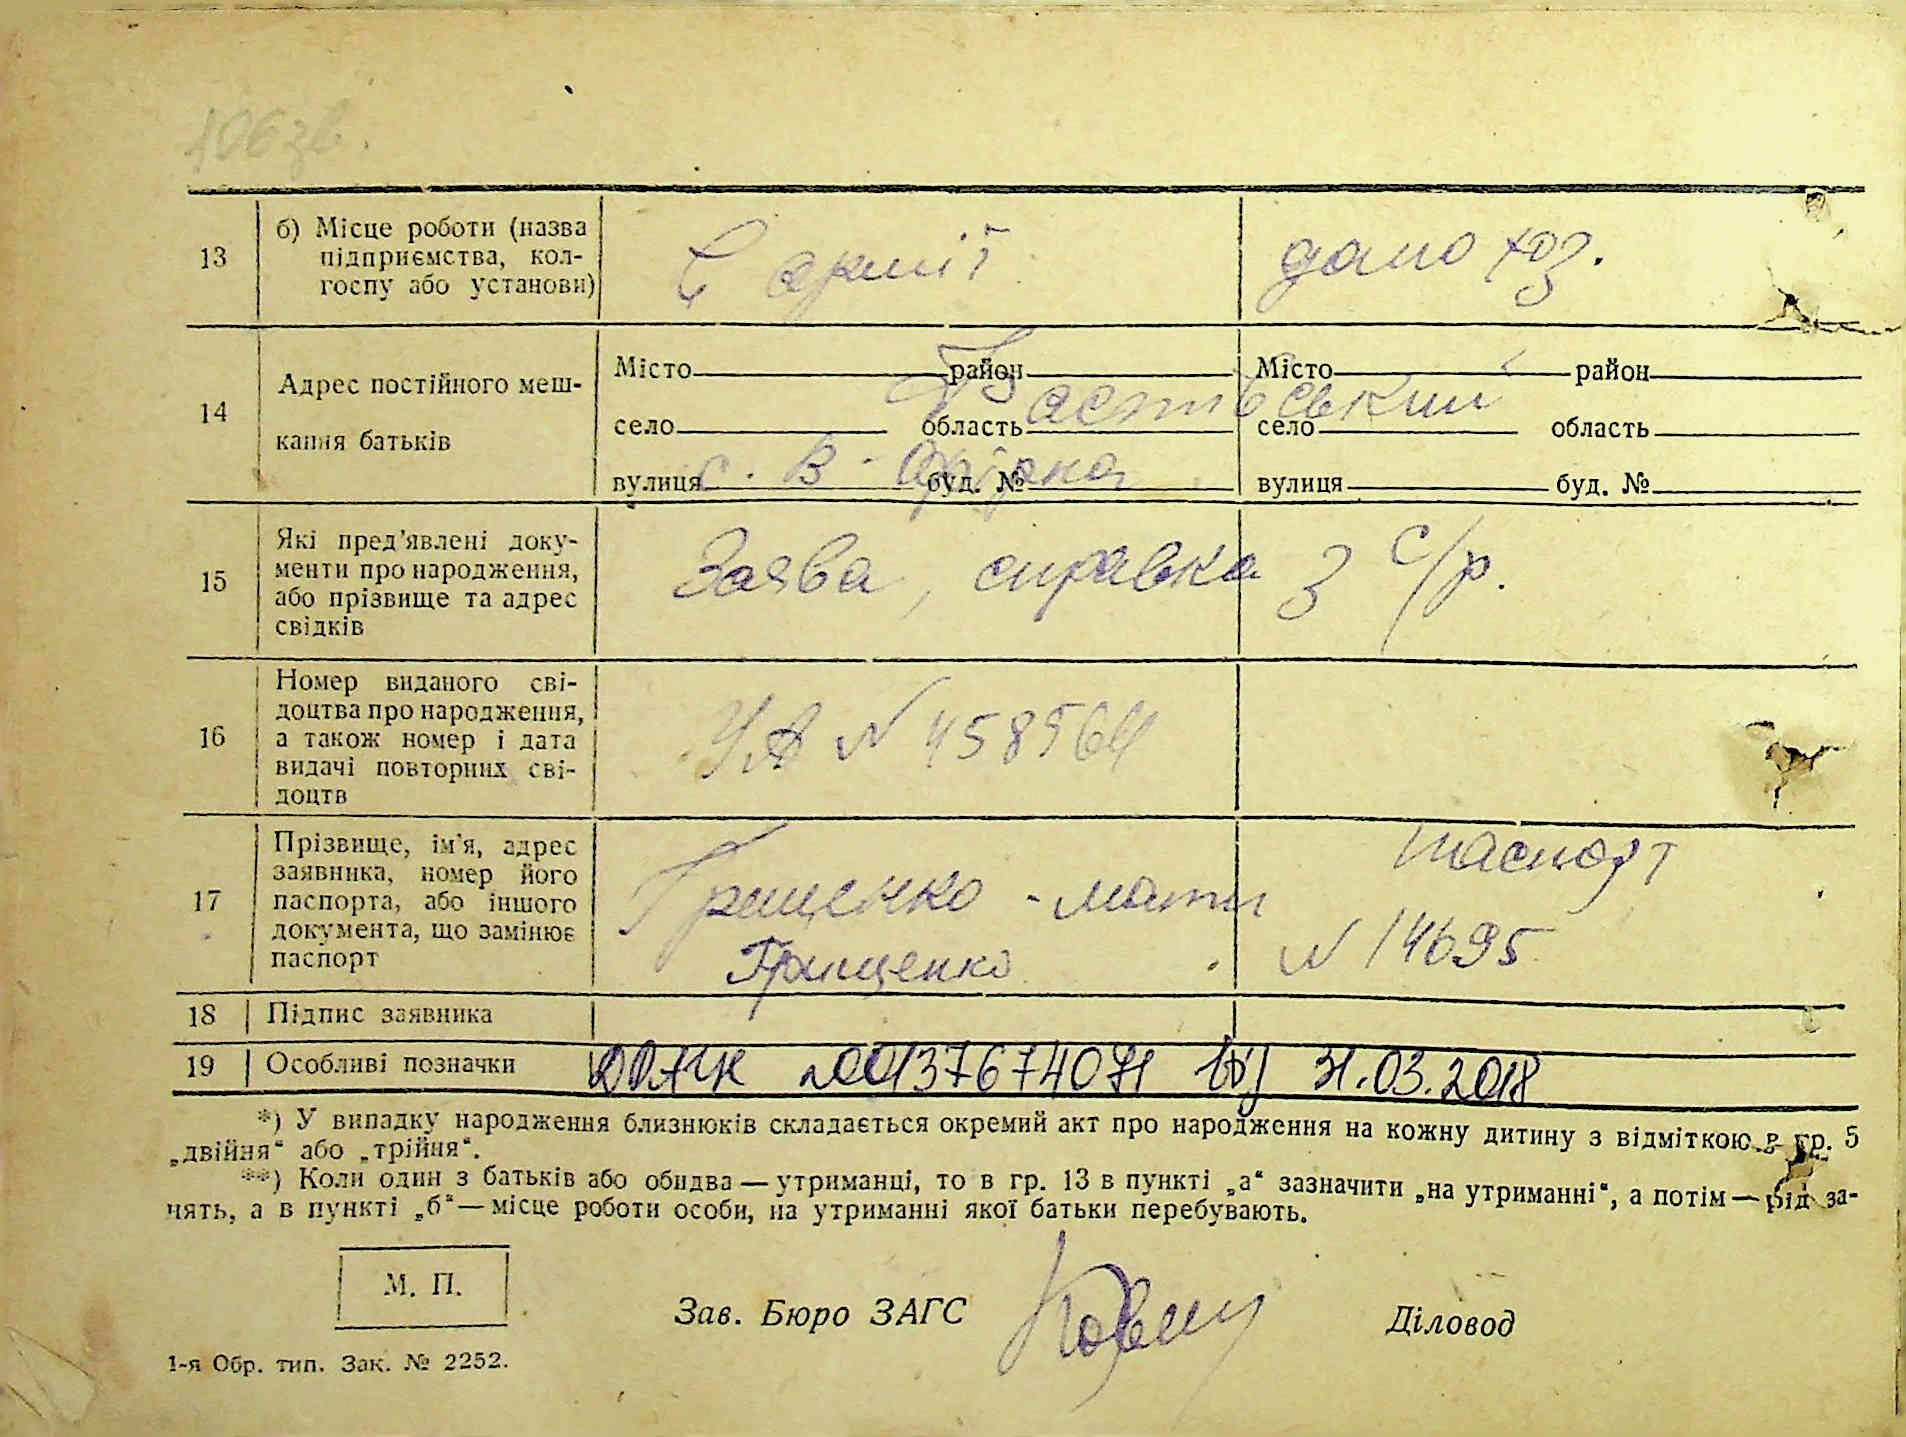 106 зв.
13 б) Місце роботи (назва підприємства, кол-
госпу або установи) Є армії домогоз.
14 Адрес постійного меш-
кання батьків
Місто район Місто район
Фастівський
село область село область
с. В-
вулиця буд. № вулиця буд. №
15 Які пред’явлені доку-
менти про народження,
або прізвище та адрес
свідків
Заява, справка з с/р.
16 Номер виданого сві-
доцтва про народження,
а також номер і дата
видачі повторних сві-
доцтв
УА N 458564
17 Прізвище, ім’я, адрес
заявника, номер його
паспорта, або іншого
документа, що замінює
паспорт
Грищенко - мати паспорт
Грищенко N 14695
18 Підпис заявника
19 Особливі позначки ДРАЦС 00137674071 від 31.03.2018
*) У випадку народження близнюків складається окремий акт про народження на кожну дитину з відміткою в гр. 5
„двійня“ або „трійня“.
**) Коли один з батьків або обидва — утриманці, то в гр. 13 в пункті „а“ зазначити „на утриманні“, а потім — рід за-
нять, а в пункті „б“ — місце роботи особи, на утриманні якої батьки перебувають.
М. П.
Зав. Бюро ЗАГС Діловод
1-я Обр. тип. Зак. № 2252.